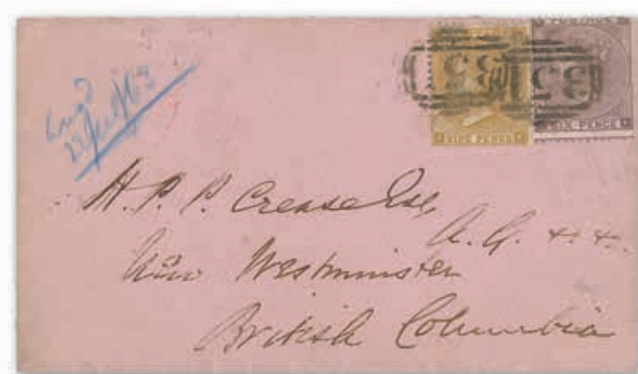 NINE PENCE
SIX PENCE
H. P. P. Crease Esq,
A. G. &. &.
New Westminster
British Columbia